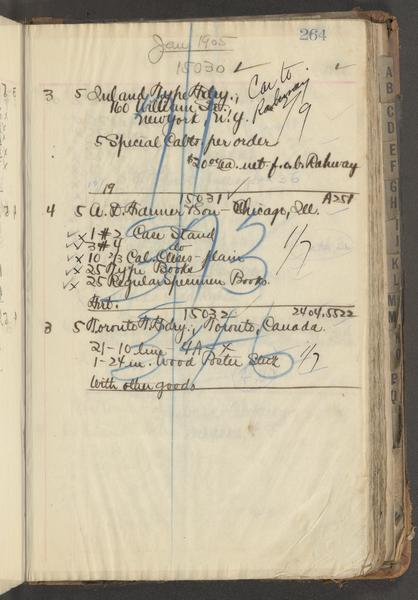 264
Jan 1905
15030 ✓
3 5 Inland Type Fdry., Car to
160 William St., Rahway
New York N.Y. 1/9
5 Special Cabts per order
$20.00 ea. net f.o.b. Rahway
19
15031 ✓ A251
4 5 A. D. Farmer & Son Chicago, Ill.
✓ × 1 #2 Case Stand 1/7
✓ × 3 #4 do
✓ × 10 2/3 Cal. Cases plain
✓ × 25 Type Books
✓ × 25 Regular Specimen Books.
Frt.
15032 ✓ 2404,5522
3 5 Toronto T. Fdry., Toronto, Canada.
21-10 line 4A
1-24 in. Wood Poster Stick 1/7
With other goods
A
B
C
D
E
F
G
H
I
J
K
L
M